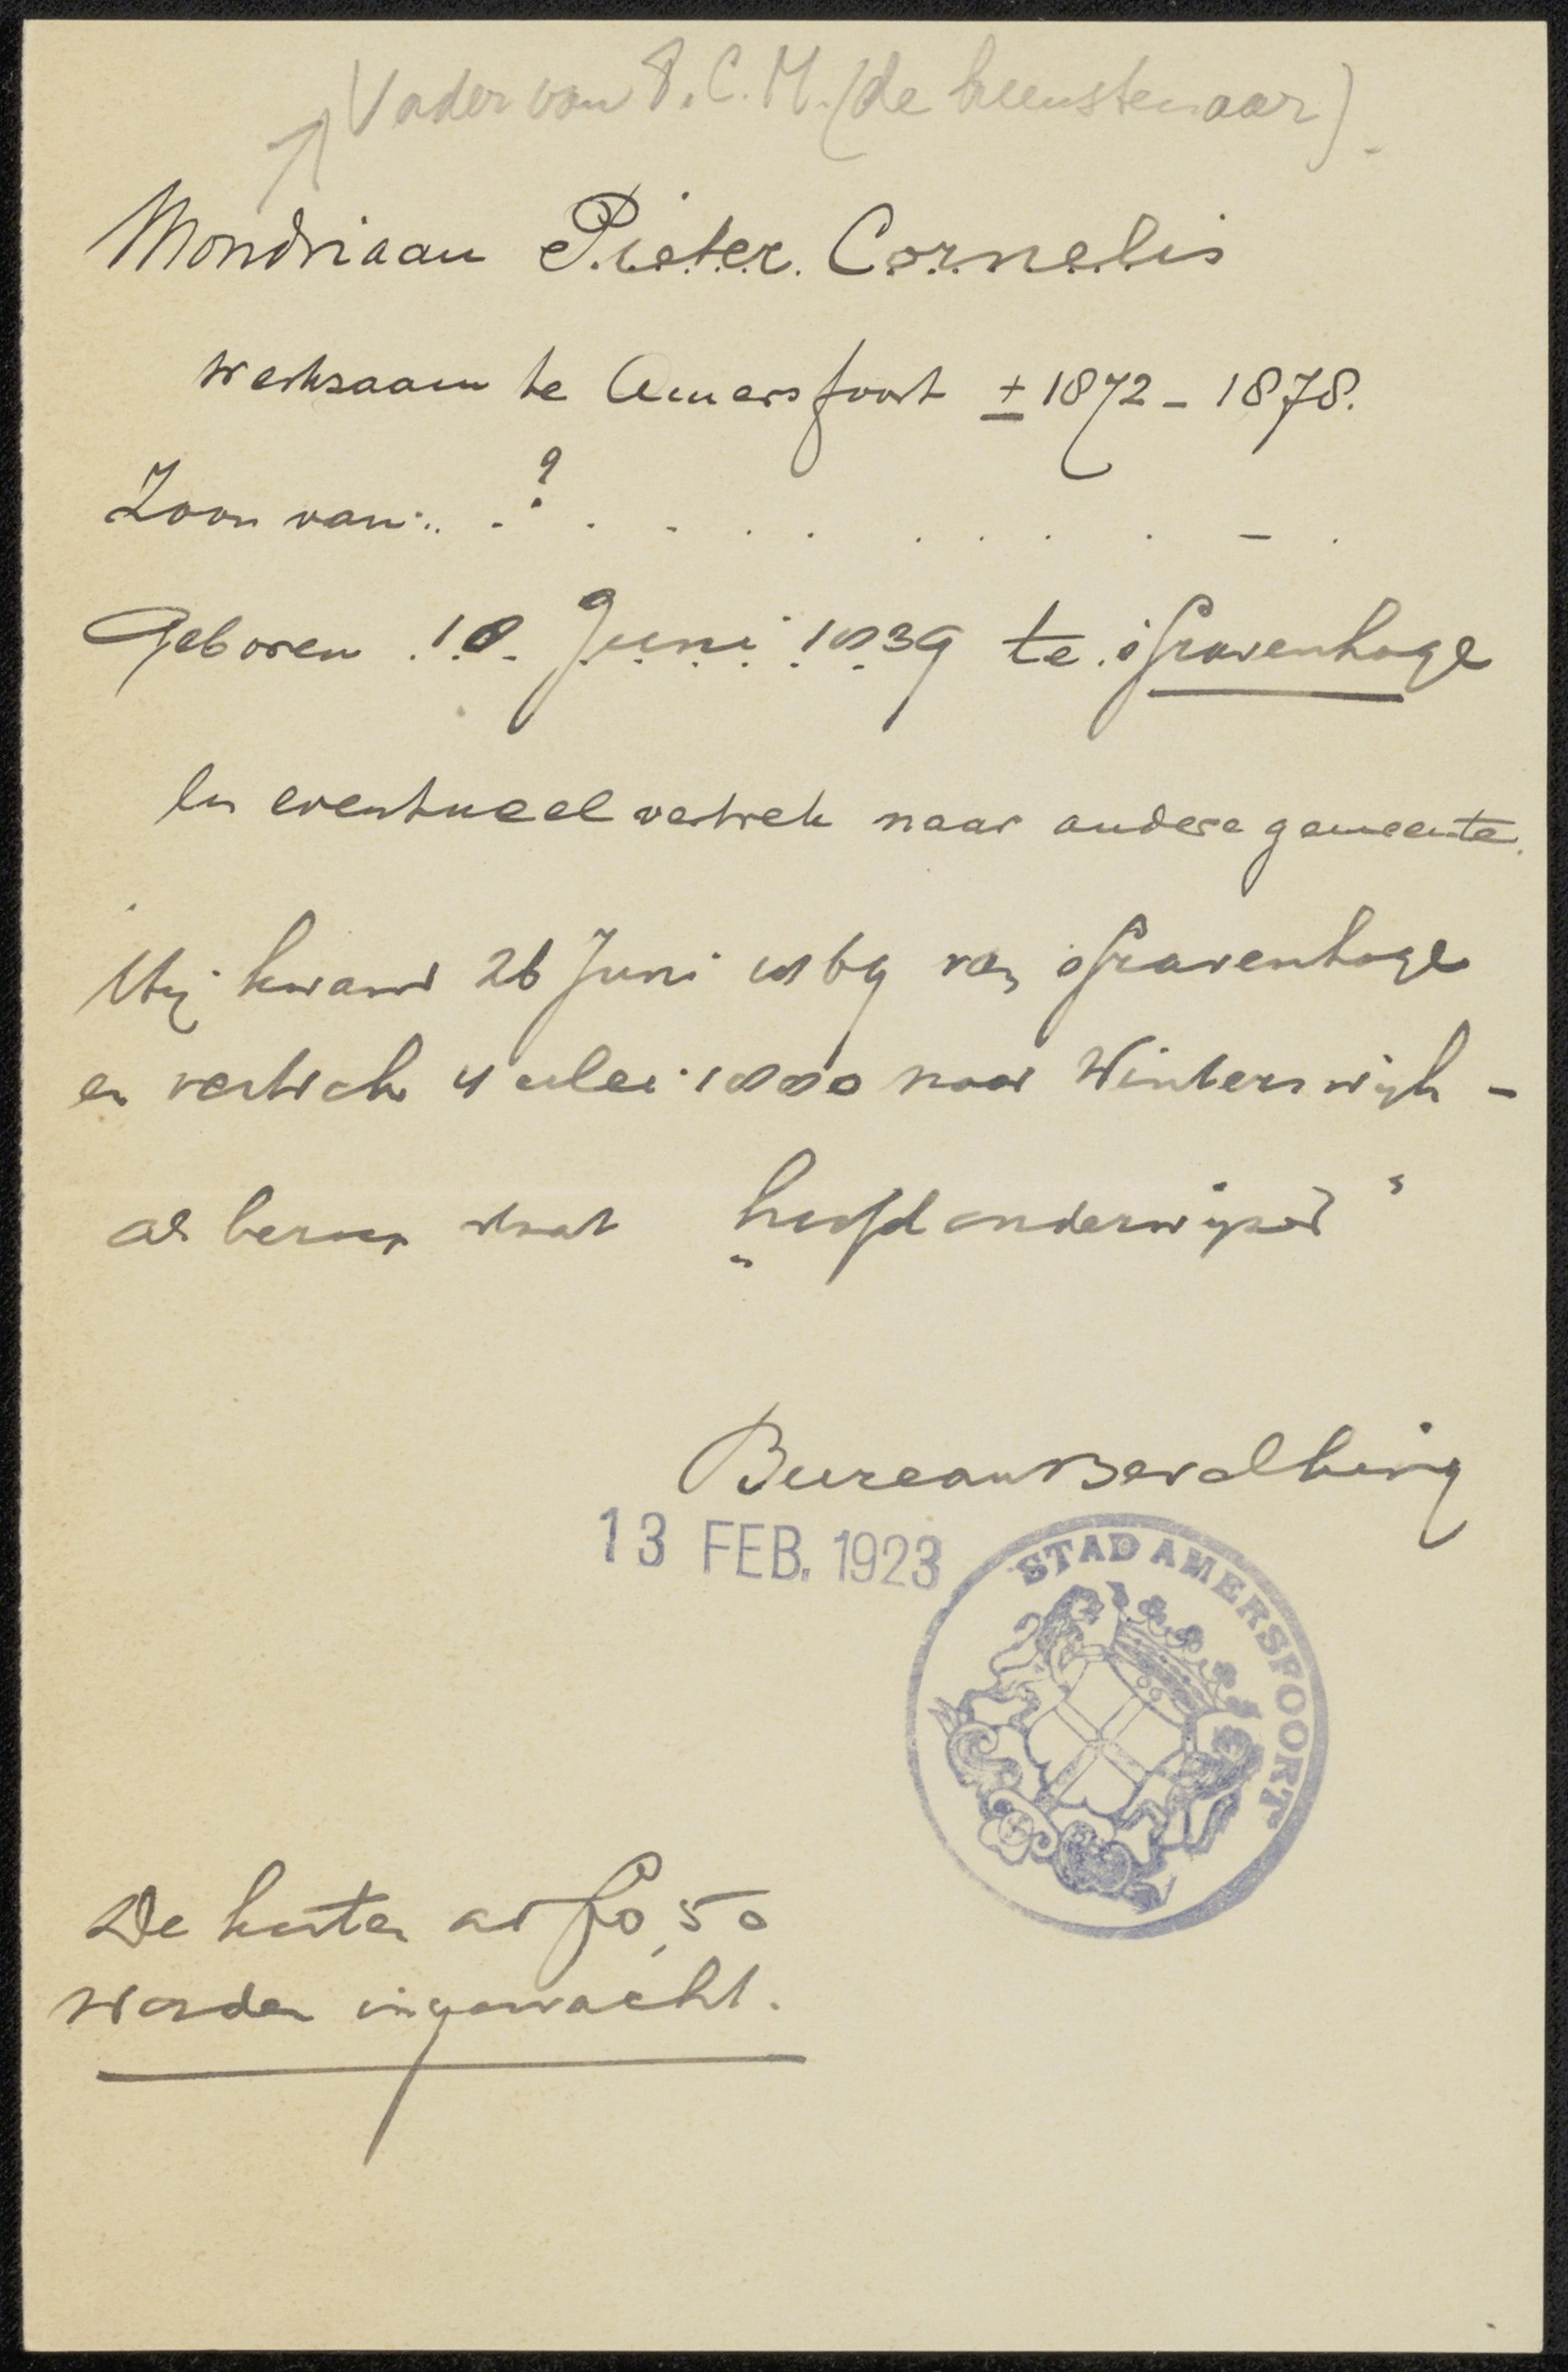 Vader van P. C. M. (de kunstenaar).
Mondriaan Pieter Cornelis
werkzaam te Amersfoort ± 1872 - 1878.
Zoon van: . . ? . . . . . . . . . - .
Geboren 18 Juni 1839 te 's Gravenhage
en eventueel vertrek naar andere gemeente.
Hij kwam 26 Juni 1869 van 's Gravenhage
en vertrok 4 1880 naar Winterswijk -
als beroep staat „hoofdonderwijzer"
Bureau Bevolking
13 FEB. 1923
STAD AMERSFOORT
De kosten ad f 0,50
worden ingewacht.